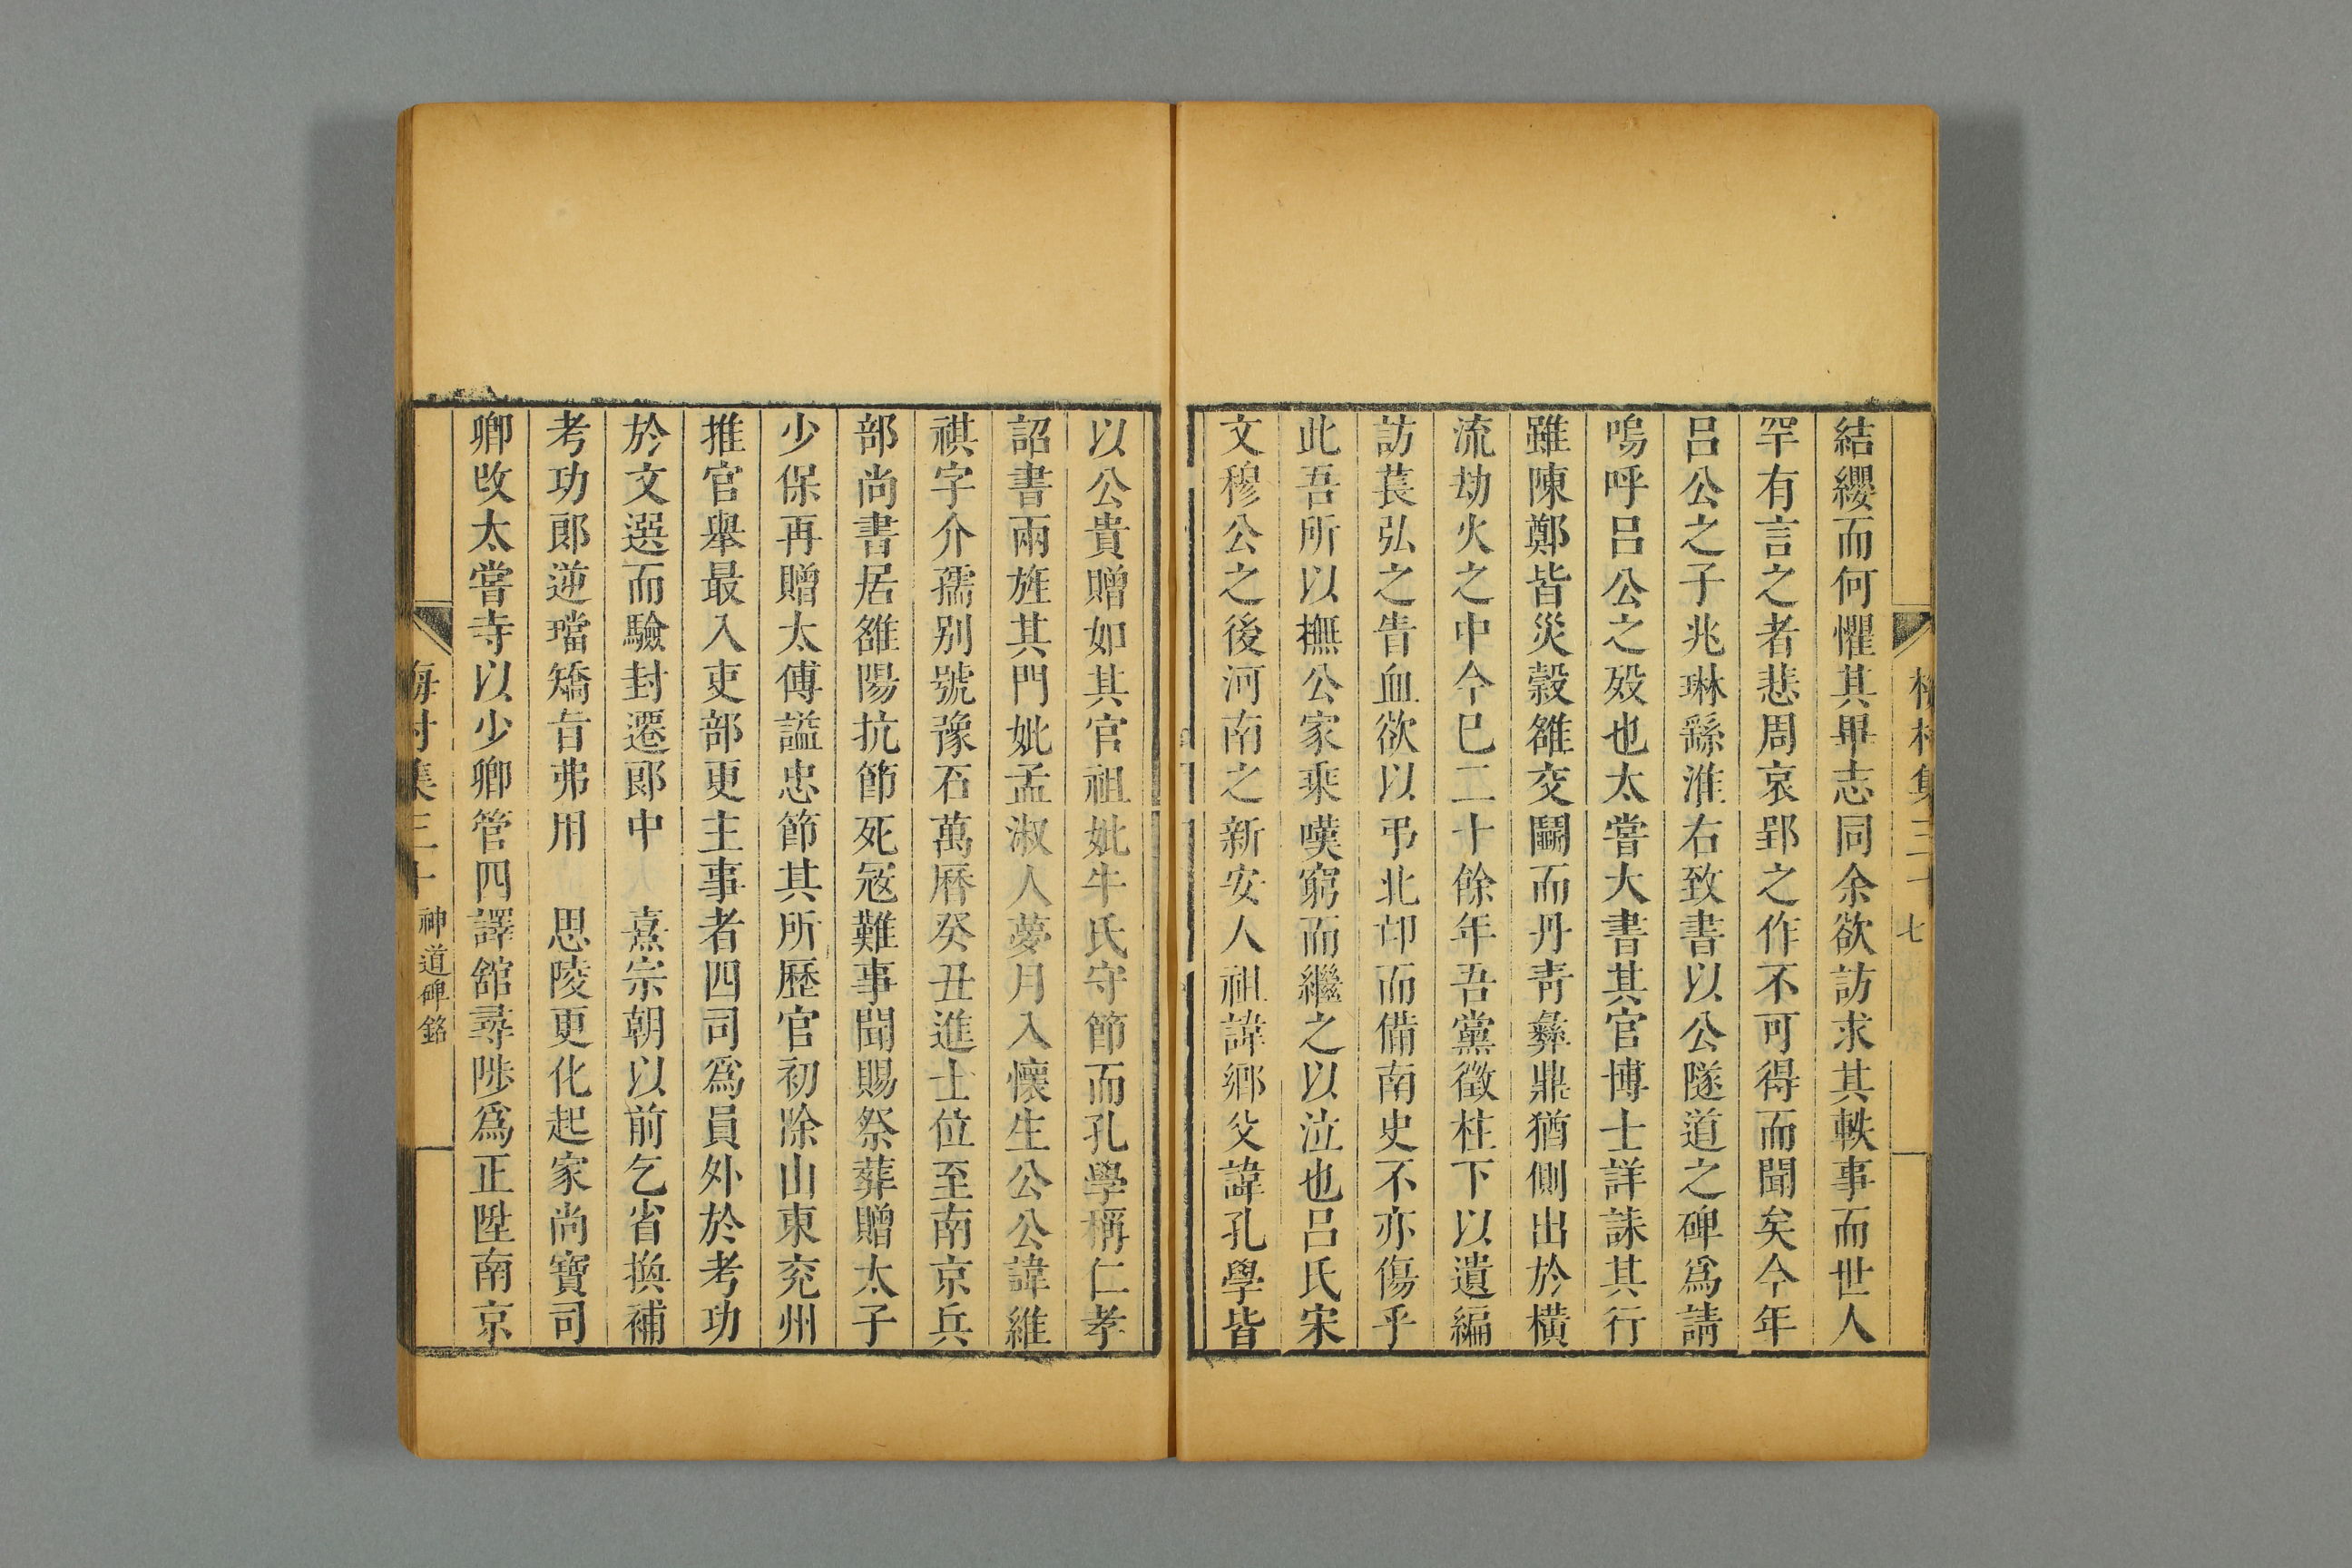 結纓而何懼其畢志同余欲訪求其軼事而世人
罕有言之者悲周哀郢之作不可得而聞矣今年
呂公之子兆琳繇淮右致書以公隧道之碑爲請
嗚呼呂公之歿也太嘗大書其官博士詳誄其行
雖陳鄭皆災穀雒交鬭而丹青彝鼎猶側出於橫
流劫火之中今巳二十餘年吾黨徵柱下以遺編
訪萇弘之眚血欲以弔北邙而備南史不亦傷乎
此吾所以撫公家乘嘆窮而繼之以泣也呂氏宋
文穆公之後河南之新安人祖諱鄉父諱孔學皆
以公貴贈如其官祖妣牛氏守節而孔學稱仁孝
詔書兩旌其門妣孟淑人夢月入懷生公公諱維
祺字介孺别號豫石萬曆癸丑進士位至南京兵
部尚書居雒陽抗節死寇難事聞賜祭葬贈太子
少保再贈太傅謚忠節其所歷官初除山東兖州
推官舉最入吏部更主事者四司爲員外於考功
於文選而驗封遷郎中 熹宗朝以前乞省換補
考功郎逆璫矯旨弗用 思陵更化起家尚寶司
卿改太嘗寺以少卿管四譯舘尋陟爲正陞南京
梅村集三十 神道碑銘
七